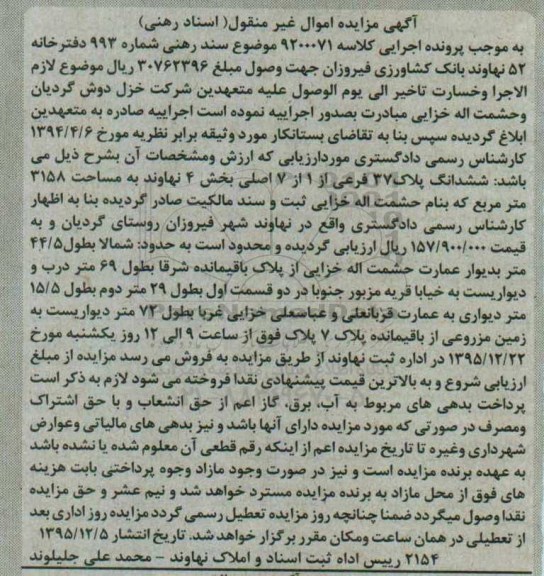 آگهی مزایده اموال غیر منقول( اسناد رهنی)
به موجب پرونده اجرایی کلاسه ۹۲۰۰۰۷۱ موضوع سند رهنی شماره ۹۹۳ دفترخانه
۵۲ نهاوند بانک کشاورزی فیروزان جهت وصول مبلغ ۳۰۷۶۲۳۹۶ ریال موضوع لازم
الاجرا وخسارت تاخیر الی یوم الوصول علیه متعهدین شرکت خزل دوش گردیان
وحشمت اله خزایی مبادرت بصدور اجراییه نموده است اجراییه صادره به متعهدین
ابلاغ گردیده سپس بنا به تقاضای بستانکار مورد وثیقه برابر نظریه مورخ ۱۳۹۴/۴/۶
کارشناس رسمی دادگستری موردارزیابی که ارزش ومشخصات آن بشرح ذیل می
باشد: ششدانگ پلاک۳۷ فرعی از ۱ از ۷ اصلی بخش ۴ نهاوند به مساحت ۳۱۵۸
متر مربع که بنام حشمت اله خزایی ثبت و سند مالکیت صادر گردیده بنا به اظهار
کارشناس رسمی دادگستری واقع در نهاوند شهر فیروزان روستای گردیان و به
قیمت ۱۵۷/۹۰۰/۰۰۰ ریال ارزیابی گردیده و محدود است به حدود: شمالا بطول۴۴/۵
متر بدیوار عمارت حشمت اله خزایی از پلاک باقیمانده شرقا بطول ۶۹ متر درب و
دیواریست به خیابا قریه مزبور جنوبا در دو قسمت اول بطول ۲۹ متر دوم بطول ۱۵/۵
متر دیواری به عمارت قربانعلی و عباسعلی خزایی غربا بطول ۷۳ متر دیواریست به
زمین مزروعی از باقیمانده پلاک ۷ پلاک فوق از ساعت ۹ الی ۱۲ روز یکشنبه مورخ
۱۳۹۵/۱۲/۲۲ در اداره ثبت نهاوند از طریق مزایده به فروش می رسد مزایده از مبلغ
ارزیابی شروع و به بالاترین قیمت پیشنهادی نقدا فروخته می شود لازم به ذکر است
پرداخت بدهی های مربوط به آب، برق، گاز اعم از حق انشعاب و با حق اشتراک
ومصرف در صورتی که مورد مزایده دارای آنها باشد و نیز بدهی های مالیاتی وعوارض
شهرداری وغیره تا تاریخ مزایده اعم از اینکه رقم قطعی آن معلوم شده یا نشده باشد
به عهده برنده مزایده است و نیز در صورت وجود مازاد وجوه پرداختی بابت هزینه
های فوق از محل مازاد به برنده مزایده مسترد خواهد شد و نیم عشر و حق مزایده
نقدا وصول میگردد ضمنا چنانچه روز مزایده تعطیل رسمی گردد مزایده روز اداری بعد
از تعطیلی در همان ساعت ومکان مقرر برگزار خواهد شد. تاریخ انتشار ۱۳۹۵/۱۲/۵
۲۱۵۴ رییس اداه ثبت اسناد و املاک نهاوند - محمد علی جلیلوند